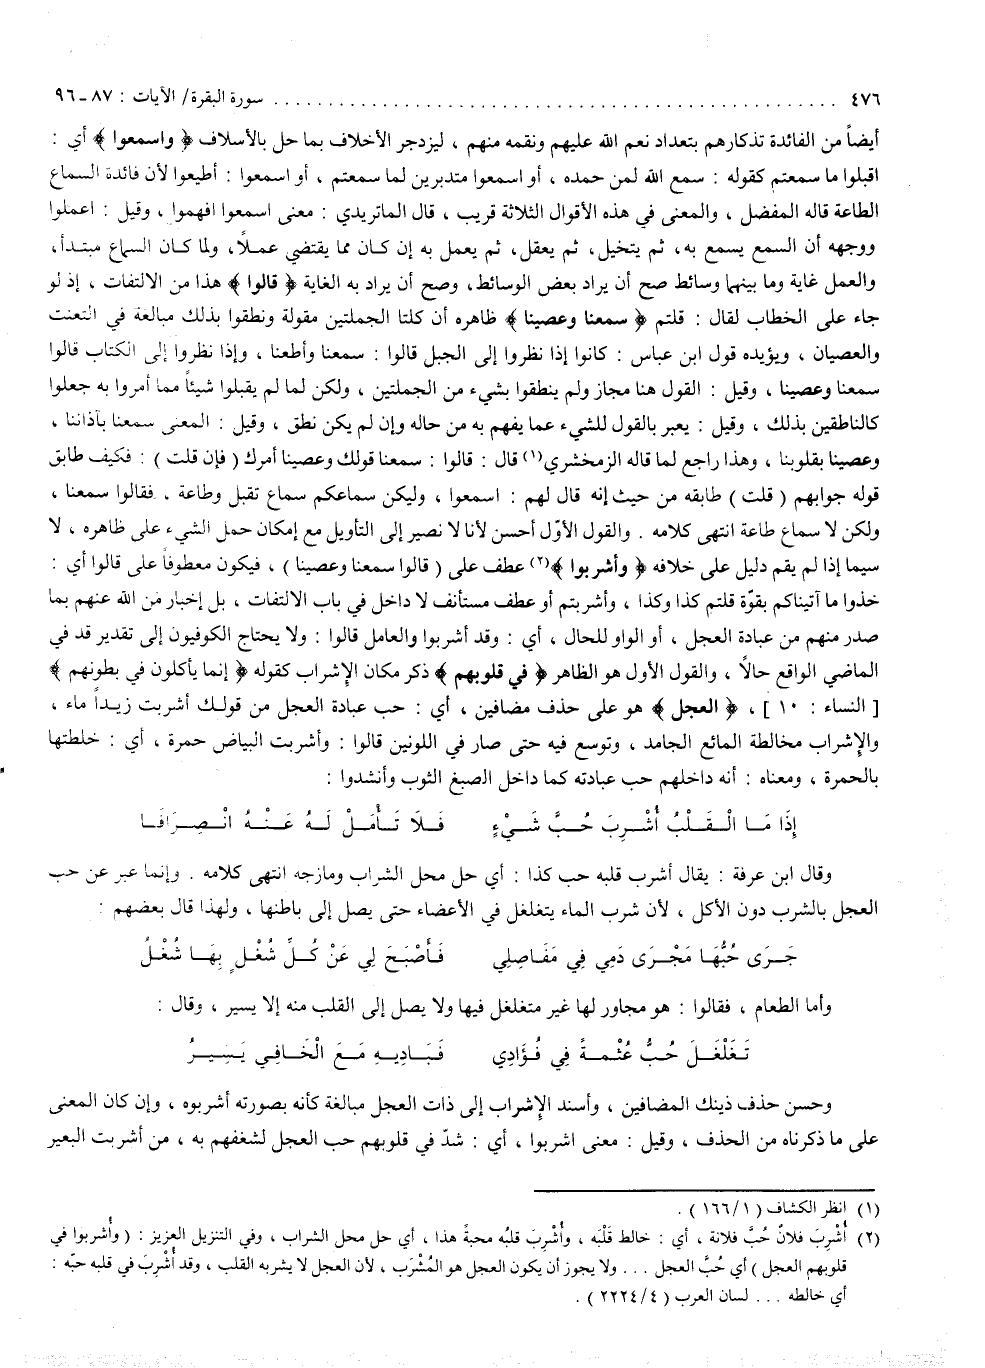 ٤٧٦ ................................................ سورة البقرة/ الآيات : ٨٧ ـ ٩٦
أيضاً من الفائدة تذكارهم بتعداد نعم الله عليهم ونقمه منهم ، ليزدجر الأخلاف بما حل بالأسلاف ﴿ واسمعوا ﴾ أي :
اقبلوا ما سمعتم كقوله : سمع الله لمن حمده ، أو اسمعوا متدبرين لما سمعتم ، أو اسمعوا : أطيعوا لأن فائدة السماع
الطاعة قاله المفضل ، والمعنى في هذه الأقوال الثلاثة قريب ، قال الماتريدي : معنى اسمعوا افهموا ، وقيل : اعملوا
ووجهه أن السمع يسمع به، ثم يتخيل، ثم يعقل، ثم يعمل به إن كان مما يقتضي عملاً، ولما كان السماع مبتدأ،
والعمل غاية وما بينهما وسائط صح أن يراد بعض الوسائط، وصح أن يراد به الغاية ﴿ قالوا ﴾ هذا من الالتفات ، إذ لو
جاء على الخطاب لقال : قلتم ﴿ سمعنا وعصينا ﴾ ظاهره أن كلتا الجملتين مقولة ونطقوا بذلك مبالغة في التعنت
والعصيان ، ويؤيده قول ابن عباس : كانوا إذا نظروا إلى الجبل قالوا : سمعنا وأطعنا ، وإذا نظروا إلى الكتاب قالوا
سمعنا وعصينا ، وقيل : القول هنا مجاز ولم ينطقوا بشيء من الجملتين ، ولكن لما لم يقبلوا شيئاً مما أمروا به جعلوا
كالناطقين بذلك ، وقيل : يعبر بالقول للشيء عما يفهم به من حاله وإن لم يكن نطق ، وقيل : المعنى سمعنا بآذاننا ،
وعصينا بقلوبنا ، وهذا راجع لما قاله الزمخشري(١) قال : قالوا : سمعنا قولك وعصينا أمرك ( فإن قلت ) : فكيف طابق
قوله جوابهم ( قلت ) طابقه من حيث إنه قال لهم : اسمعوا ، وليكن سماعكم سماع تقبل وطاعة ، فقالوا سمعنا ،
ولكن لا سماع طاعة انتهى كلامه . والقول الأوّل أحسن لأنا لا نصير إلى التأويل مع إمكان حمل الشيء على ظاهره ، لا
سيما إذا لم يقم دليل على خلافه ﴿ وأشربوا ﴾(٢) عطف على ( قالوا سمعنا وعصينا ) ، فيكون معطوفاً على قالوا أي :
خذوا ما آتيناكم بقوّة قلتم كذا وكذا ، وأشربتم أو عطف مستأنف لا داخل في باب الالتفات ، بل إخبار من الله عنهم بما
صدر منهم من عبادة العجل ، أو الواو للحال ، أي : وقد أشربوا والعامل قالوا : ولا يحتاج الكوفيون إلى تقدير قد في
الماضي الواقع حالاً ، والقول الأول هو الظاهر ﴿ في قلوبهم ﴾ ذكر مكان الإشراب كقوله ﴿ إنما يأكلون في بطونهم ﴾
[ النساء : ١٠ ] ، ﴿ العجل ﴾ هو على حذف مضافين ، أي : حب عبادة العجل من قولك أشربت زيداً ماء ،
والإشراب مخالطة المائع الجامد ، وتوسع فيه حتى صار في اللونين قالوا : وأشربت البياض حمرة ، أي : خلطتها
بالحمرة ، ومعناه : أنه داخلهم حب عبادته كما داخل الصبغ الثوب وأنشدوا :
إِذَا مَا الْقَلْبُ أُشْرِبَ حُبَّ شَيْءٍ فَلَا تَأْمَلْ لَهُ عَنْهُ انْصِرَافَا
وقال ابن عرفة : يقال أشرب قلبه حب كذا : أي حل محل الشراب ومازجه انتهى كلامه . وإنما عبر عن حب
العجل بالشرب دون الأكل ، لأن شرب الماء يتغلغل في الأعضاء حتى يصل إلى باطنها ، ولهذا قال بعضهم :
جَرَى حُبُّهَا مَجْرَى دَمِي فِي مَفَاصِلِي فَأَصْبَحَ لِي عَنْ كُلِّ شُغْلٍ بِهَا شُغْلُ
وأما الطعام ، فقالوا : هو مجاور لها غير متغلغل فيها ولا يصل إلى القلب منه إلا يسير ، وقال :
تَغَلْغَلَ حُبُّ عُثْمَةَ فِي فُؤَادِي فَبَادِيهِ مَعَ الْخَافِي يَسِيرُ
وحسن حذف ذينك المضافين ، وأسند الإشراب إلى ذات العجل مبالغة كأنه بصورته أشربوه ، وإن كان المعنى
على ما ذكرناه من الحذف ، وقيل : معنى اشربوا ، أي : شدّ في قلوبهم حب العجل لشغفهم به ، من أشربت البعير
(١) انظر الكشاف ( ١/ ١٦٦ ) .
(٢) أُشْرِبَ فلانٌ حُبَّ فلانة ، أي : خالط قَلْبَه ، وأُشْرِبَ قلبُه محبةَ هذا ، أي حل محل الشراب ، وفي التنزيل العزيز : ( وأُشربوا في
قلوبهم العجل ) أي حُبَّ العجل ... ولا يجوز أن يكون العجل هو المُشْرَب ، لأن العجل لا يشربه القلب ، وقد أُشْرِبَ في قلبه حبّه :
أي خالطه ... لسان العرب ( ٤/ ٢٢٢٤ ) .